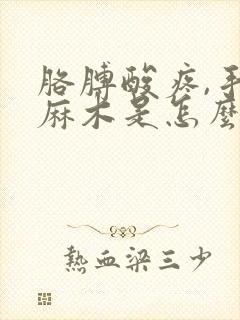 胳膊酸疼,手
麻木是怎麼
熱血梁三少